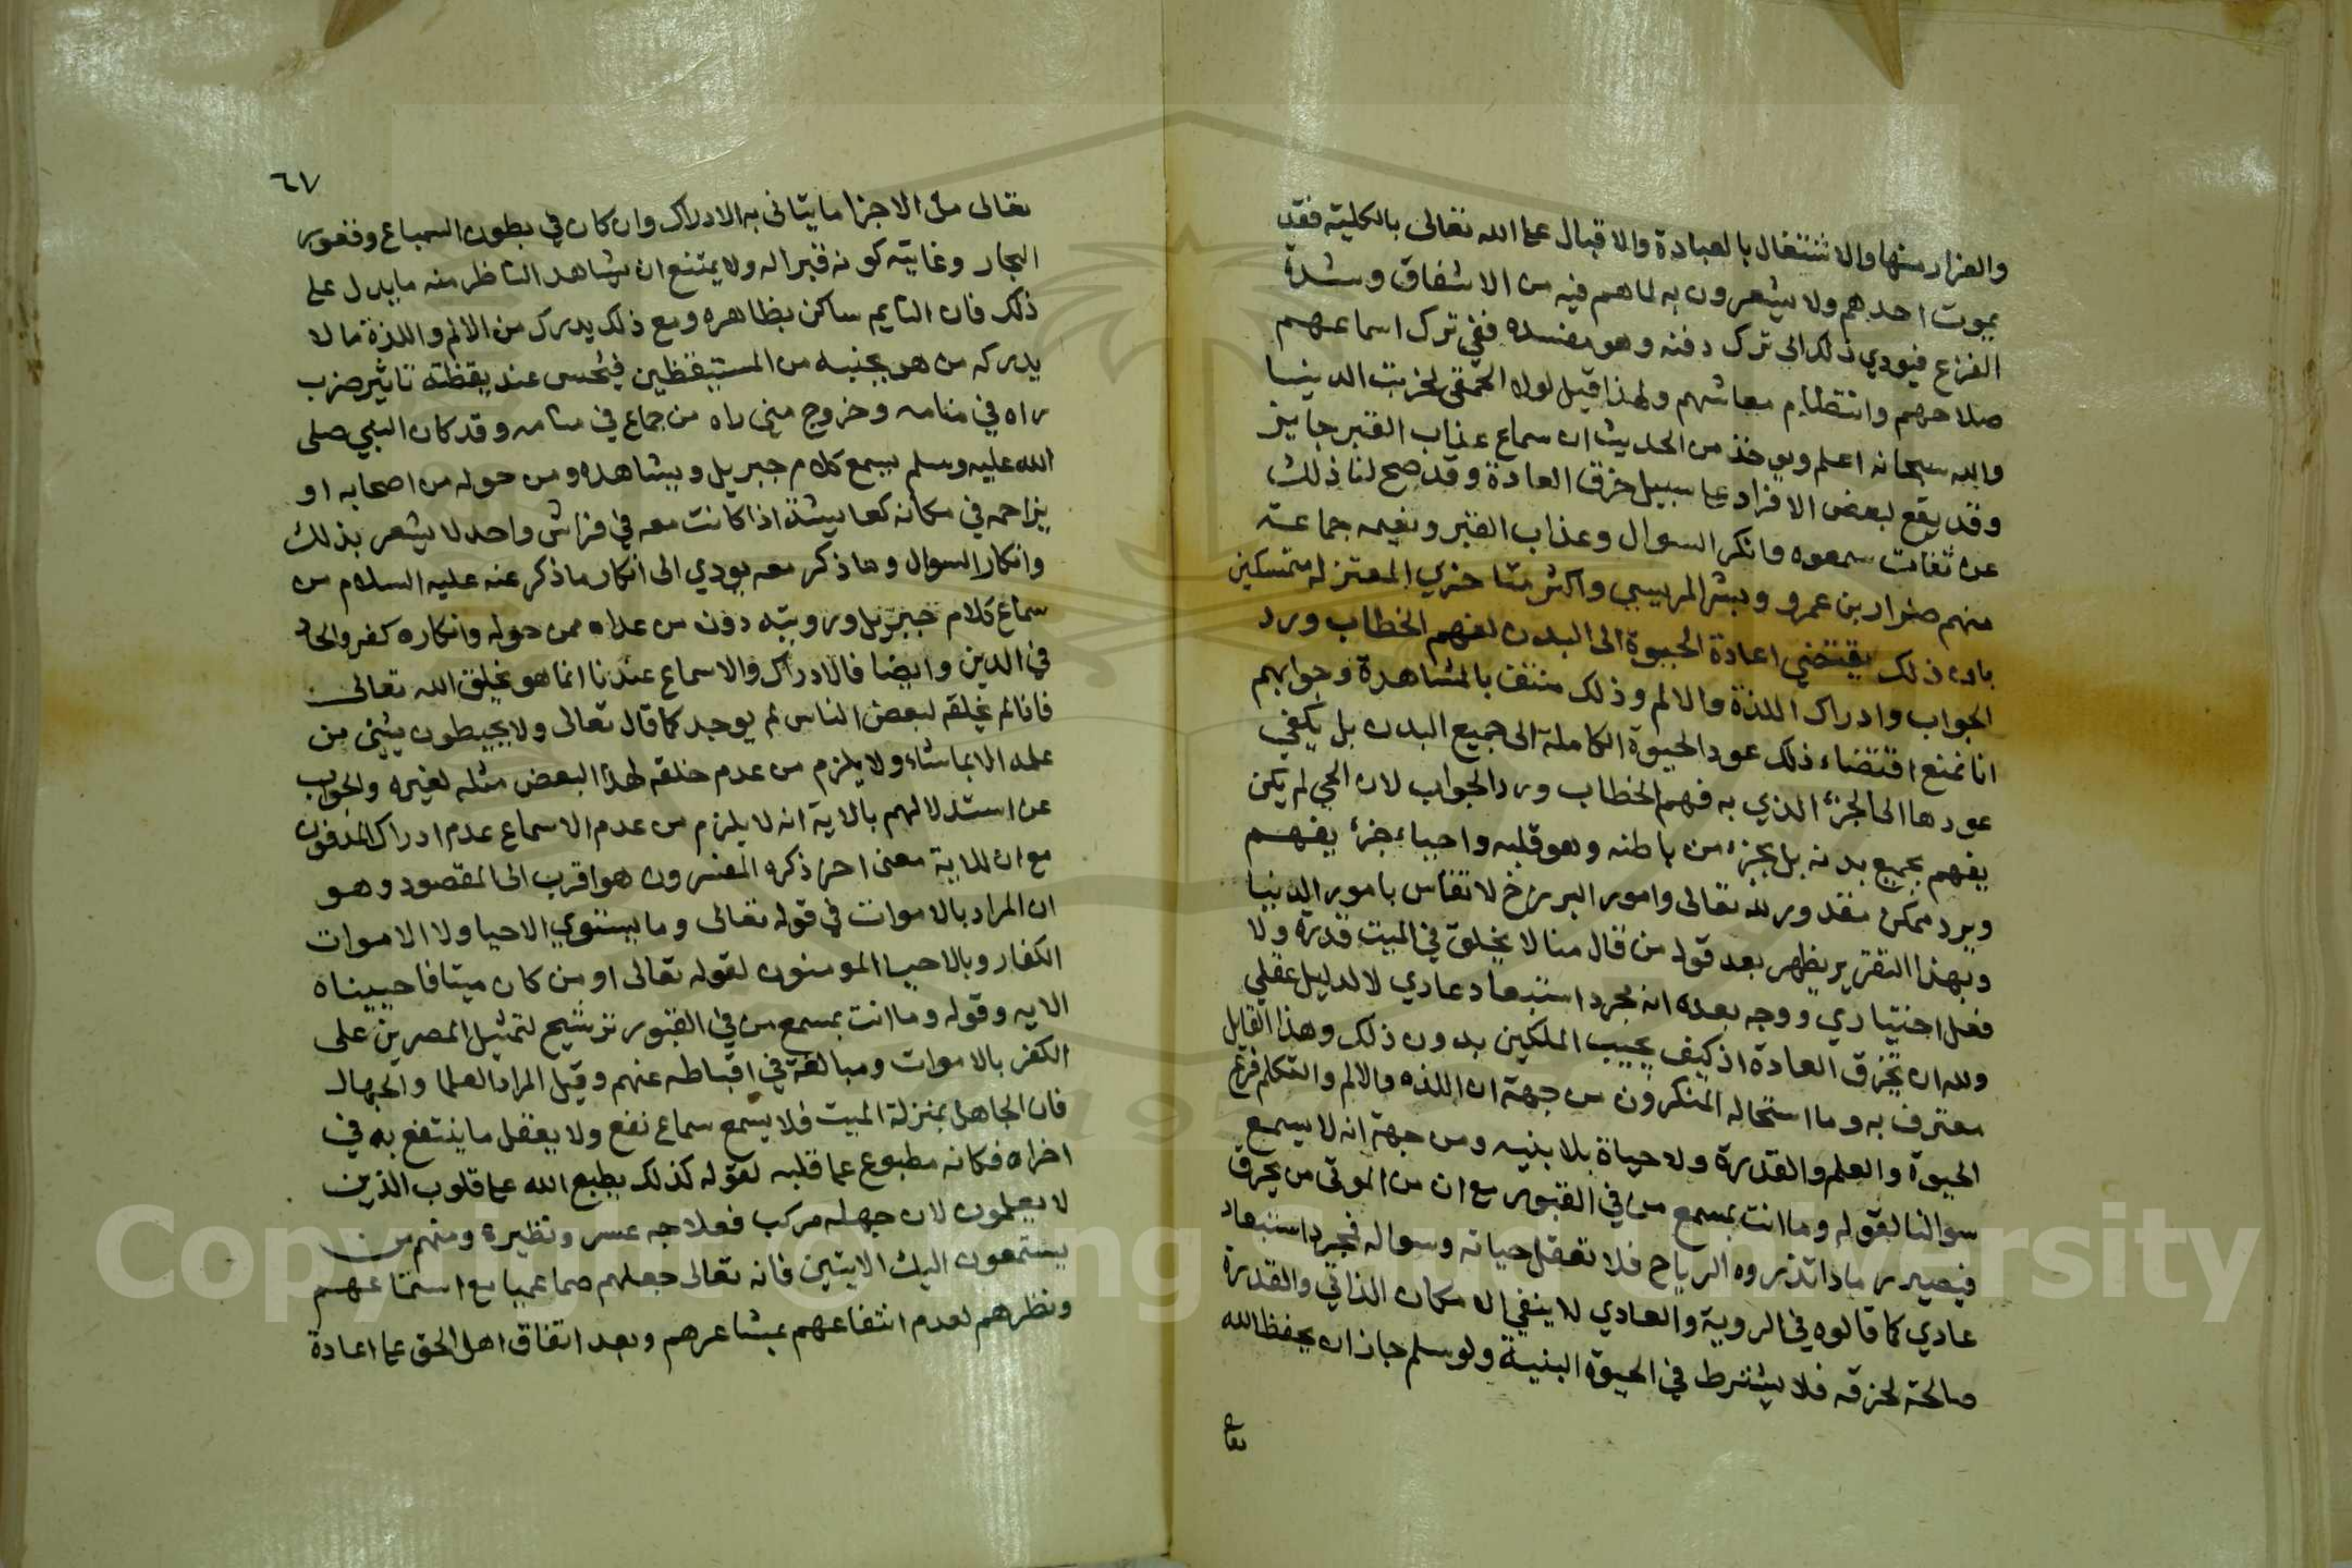 والفرار منها والاشتغال بالعبادة والاقبال على الله تعالى بالكلية فقد
يموت احدهم ولا يشعرون به لما هم فيه من الاشفاق وشدة
الفزع فيودي ذلك الى ترك دفنه وهو مفسده ففي ترك اسماعهم
صلاحهم وانتظام معاشهم ولهذا قيل لولا الحمقى لخربت الدنيا
والله سبحانه اعلم ويوخذ من الحديث ان سماع عذاب القبر جايز
وقد يقع لبعض الافراد على سبيل خرق العادة وقد صح لنا ذلك
عن ثقات سمعوه وانكر السوال وعذاب القبر ونعيمه جماعة
منهم ضرار بن عمرو وبشر المريسي واكثر متاخري المعتزله متمسكين
بان ذلك يقتضي اعادة الحيوة الى البدن لفهم الخطاب ورد
الجواب وادراك اللذة والالم وذلك منتف بالمشاهدة وجوابهم
انا نمنع اقتضاء ذلك عود الحيوة الكاملة الى جميع البدن بل يكفي
عودها الى الجزء الذي به فهم الخطاب ورد الجواب لان الحي لم يكن
يفهم بجميع بدنه بل بجزء من باطنه وهو قلبه واحياء جزء يفهم
ويرد ممكن مقدور لله تعالى وامور البرزخ لا تقاس بامور الدنيا
وبهذا التقرير يظهر بعد قول من قال منا لا يخلق في الميت قدرة ولا
فعل اختياري ووجه بعده انه مجرد استبعاد عادي لا لدليل عقلي
ولله ان يخرق العادة اذ كيف يجيب الملكين بدون ذلك وهذا القايل
معترف به وما استحاله المنكرون من جهة ان اللذه والالم والتكلم فرع
الحيوة والعلم والقدرة ولا حياة بلا بنيه ومن جهة انه لا يسمع
سوالنا لقوله وما انت بمسمع من في القبور مع ان من الموتى من يحرق
فيصير رمادا تذروه الرياح فلا تعقل حياته وسواله فمجرد استبعاد
عادي كما قالوه في الروية والعادي لا ينفي الامكان الذاتي والقدرة
صالحة لخرقه فلا يشترط في الحيوة البنية ولو سلم جاز ان يحفظ الله
تعالى
٦٧
تعالى من الاجزا ما يتاتى به الادراك وان كان في بطون السباع وقعور
البحار وغايته كونه قبرا له ولا يمتنع ان يشاهد الناظر منه ما يدل على
ذلك فان النايم ساكن بظاهره ومع ذلك يدرك من الالم واللذة ما لا
يدركه من هو بجنبه من المستيقظين فيحس عند يقظته تاثير ضرب
راه في منامه وخروج مني راه من جماع في منامه وقد كان النبي صلى
الله عليه وسلم يسمع كلام جبريل ويشاهده ومن حوله من اصحابه او
يزاحمه في مكانه كعايشة اذا كانت معه في فراش واحد لا يشعر بذلك
وانكار السوال وما ذكر معه يودي الى انكار ما ذكر عنه عليه السلام من
سماع كلام جبريل ورويته دون من عداه ممن حوله وانكاره كفر والحاد
في الدين وايضا فالادراك والاسماع عندنا انما هو بخلق الله تعالى
فاذا لم يخلقه لبعض الناس لم يوجد كما قال تعالى ولا يحيطون بشئ من
علمه الا بما شاء ولا يلزم من عدم خلقه لهذا البعض مثله لغيره والجواب
عن استدلالهم بالاية انه لا يلزم من عدم الاسماع عدم ادراك المدفون
مع ان للاية معنى اخر ذكره المفسرون هو اقرب الى المقصود وهو
ان المراد بالاموات في قوله تعالى وما يستوي الاحيا ولا الاموات
الكفار وبالاحيا المومنون لقوله تعالى او من كان ميتا فاحييناه
الايه وقوله وما انت بمسمع من في القبور ترشيح لتمثيل المصرين على
الكفر بالاموات ومبالغة في اقباطه عنهم وقيل المراد العلما والجهال
فان الجاهل بمنزلة الميت فلا يسمع سماع نفع ولا يعقل ما ينتفع به في
اخراه فكانه مطبوع على قلبه لقوله كذلك يطبع الله على قلوب الذين
لا يعلمون لان جهله مركب فعلاجه عسر ونظيره ومنهم من
يستمعون اليك الايتين فانه تعالى جعلهم صما عميا مع استماعهم
ونظرهم لعدم انتفاعهم بمشاعرهم وبعد اتفاق اهل الحق على اعادة
Copyright © King Saud University